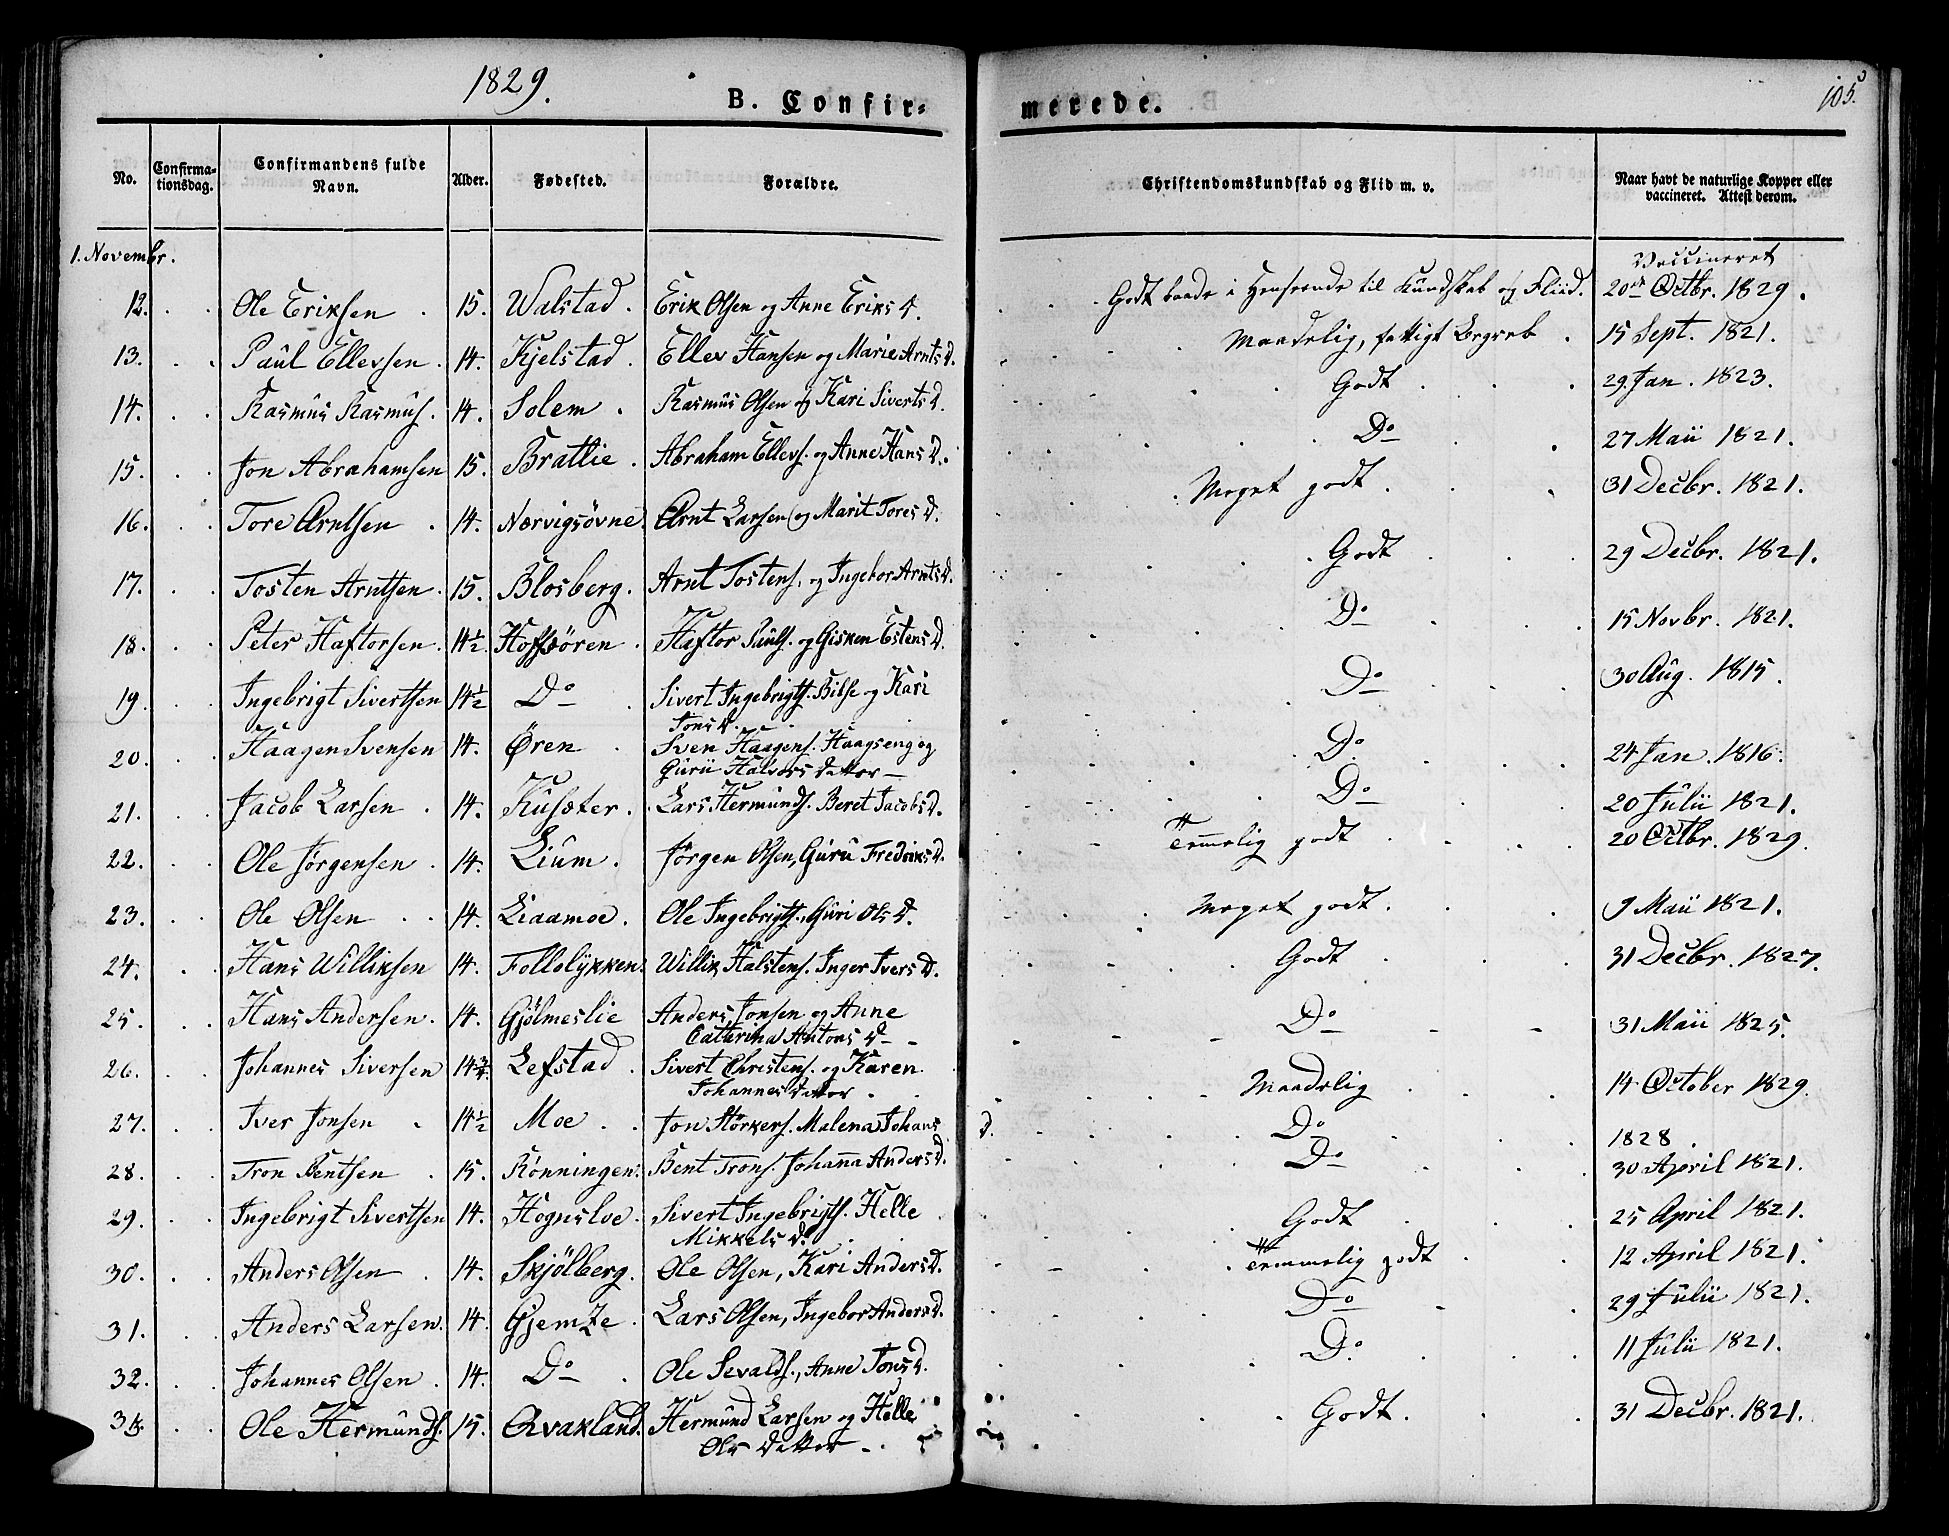 1829.
B. Confir=
merede.
105.
No.
Confirma-
tionsdag.
Confirmandens fulde
Navn.
Alder.
Fødested.
Forældre.
Christendomskundskab og Flid m. v.
Naar havt de naturlige Kopper eller
vaccineret. Attest derom.
1. Novembr.
Vaccineret
12. Ole Eriksen 15. Walstad. Erik Olsen og Anne Eriks D. Godt baade i Henseende til Kundskab og Fliid. 20de Octbr. 1829.
13. Paul Ellevsen. 14. Kjelstad. Ellev Hansen og Marie Arnts D. Maadelig, fattigt Begreb. 15 Sept. 1821.
14. Rasmus Rasmus. 14. Solem. Rasmus Olsen og Kari Siverts D. Godt 29. Jan. 1823.
15. Jon Abrahamsen 15. Brattlie. Abraham Ellevs. og Anne Hans D. Do 27 Maii 1821.
16. Tore Arntsen. 14. Nærvigsøvne Arnt Larsen og Marit Tores D. Meget godt. 31 Decbr. 1821.
17. Tosten Arntsen. 15. Blosberg. Arnt Tostens. og Ingebor Arnts D. Godt 29 Decbr. 1821.
18. Peter Haftorsen. 14½ Hofsøren. Haftor Pauls. og Gisken Estens D. Do 15 Novbr. 1821.
19. Ingebrigt Sivertsen 14½ Do Sivert Ingebrigts. Bilse og Kari
Jons D. Do 30 Aug. 1815.
20. Haagen Svensen 14. Ören Sven Haagens. Haagseng og
Guru Halvors Datter Do 24 Jan. 1816.
21. Jacob Larsen. 14. Kusæter. Lars Hermunds. Beret Jacobs D. Do 20 Julii 1821.
22. Ole Jørgensen. 14. Lium. Jørgen Olsen, Guru Fredriks D. Temmelig godt 20 Octbr. 1829.
23. Ole Olsen 14. Liaamoe. Ole Ingebrigts., Guri Ols D. Meget godt. 9 Maii 1821.
24. Hans Williksen 14. Follolykken. Willik Halstens. Inger Ivers D. Godt 31 Decbr. 1827.
25. Hans Andersen. 14. Gjølmeslie Anders Jonsen og Anne
Cathrina Antons D. Do 31 Maii 1825.
26. Johannes Siversen 14¾ Lefstad. Sivert Christens. og Karen
Johannes Datter. Maadelig 14 October 1829.
27. Iver Jonsen 14½ Moe. Jon Størkers. Malena Johans D. Do 1828.
28. Tron Bentsen. 15. Rönningen. Bent Trons. Johanna Anders D. Do 30 April 1821.
29. Ingebrigt Sivertsen 14. Hognsloe. Sivert Ingebrigts. Helle
Mikkels D. Godt 25 April 1821.
30. Anders Olsen. 14. Skjölberg. Ole Olsen, Kari Anders D. Temmelig godt 12 April 1821.
31. Anders Larsen. 14. Gjemze. Lars Olsen, Ingebor Anders D. Do 29 Julii 1821.
32. Johannes Olsen. 14. Do Ole Sivalds., Anne Jons D. Do 11 Julii 1821.
Ole Hermunds. 15. Qvakland. Hermund Larsen og Helle
Ols Datter. Godt. 31 Decbr. 1821.